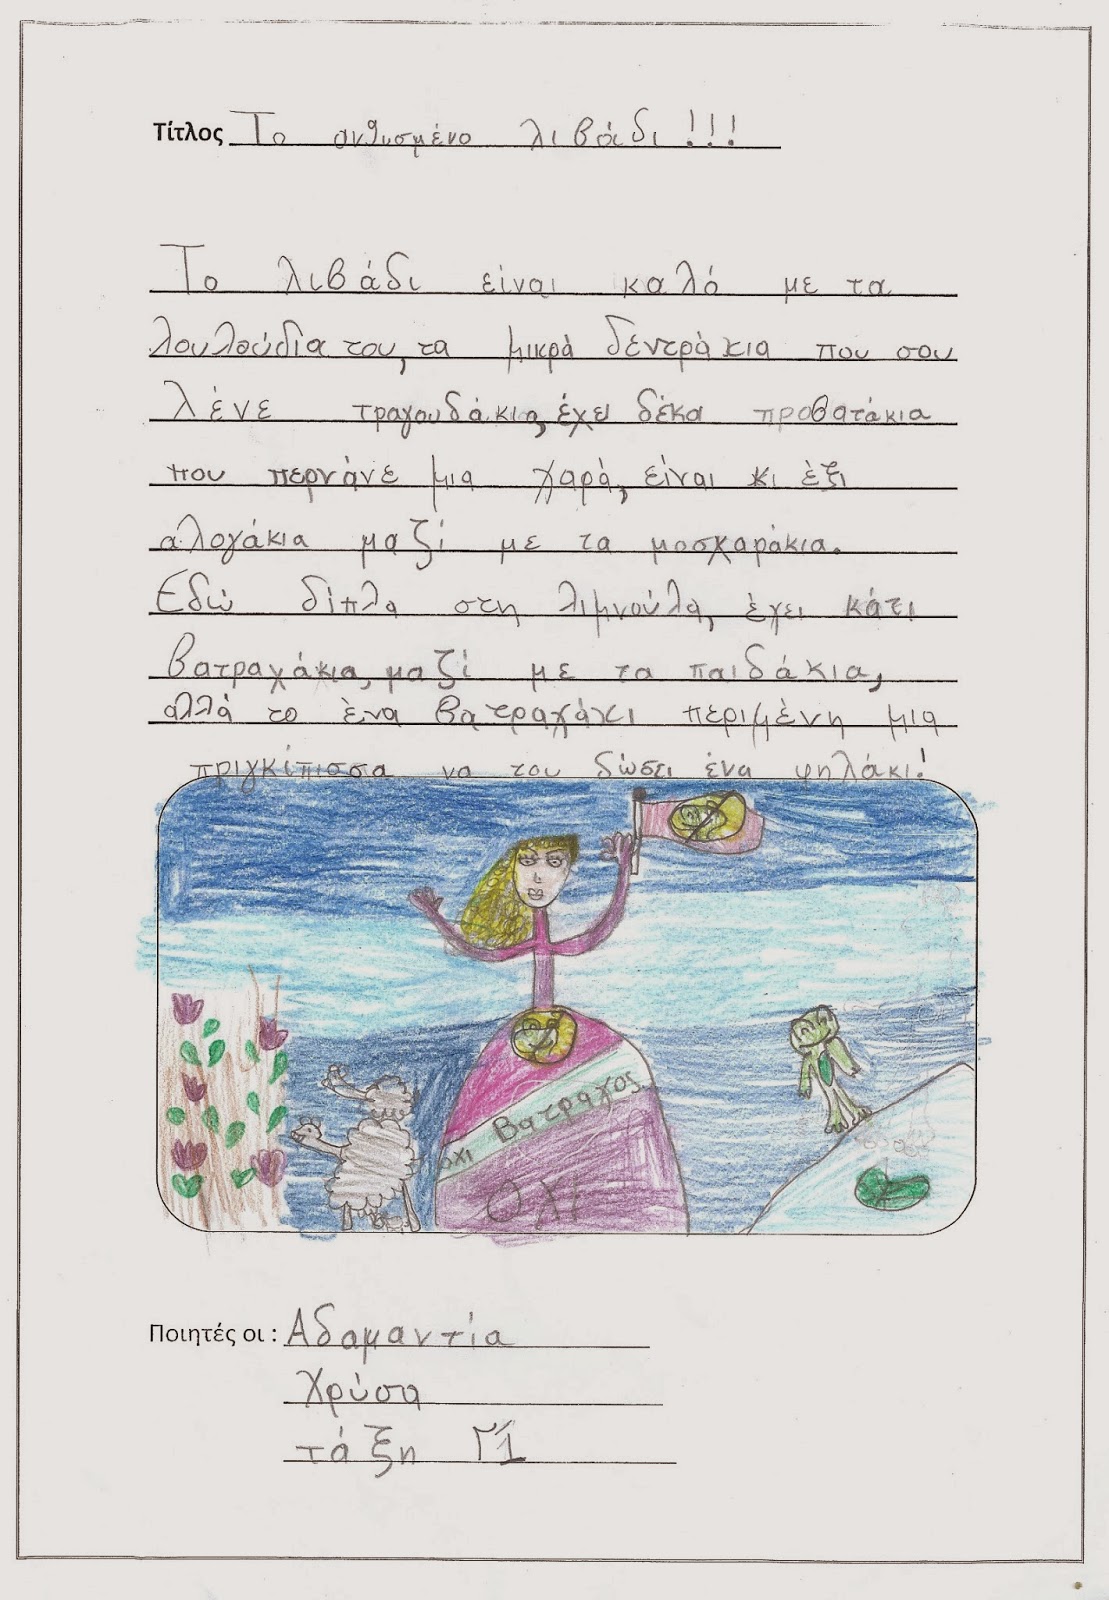 Τίτλος Το ανθισμένο λιβάδι!!!
Το λιβάδι είναι καλό με τα
λουλούδια του, τα μικρά δεντράκια που σου
λένε τραγουδάκια, έχει δέκα προβατάκια
που περνάνε μια χαρά, είναι κι έξι
αλογάκια μαζί με τα μοσχαράκια.
Εδώ δίπλα στη λιμνούλα, έχει κάτι
βατραχάκια, μαζί με τα παιδάκια,
αλλά το ένα βατραχάκι περιμένη μια
πριγκίπισσα να του δώσει ένα φηλάκι!
Βατραχος
οχι
ΟΧΙ
Ποιητές οι : Αδαμαντία
Χρύσα
τάξη Γ1